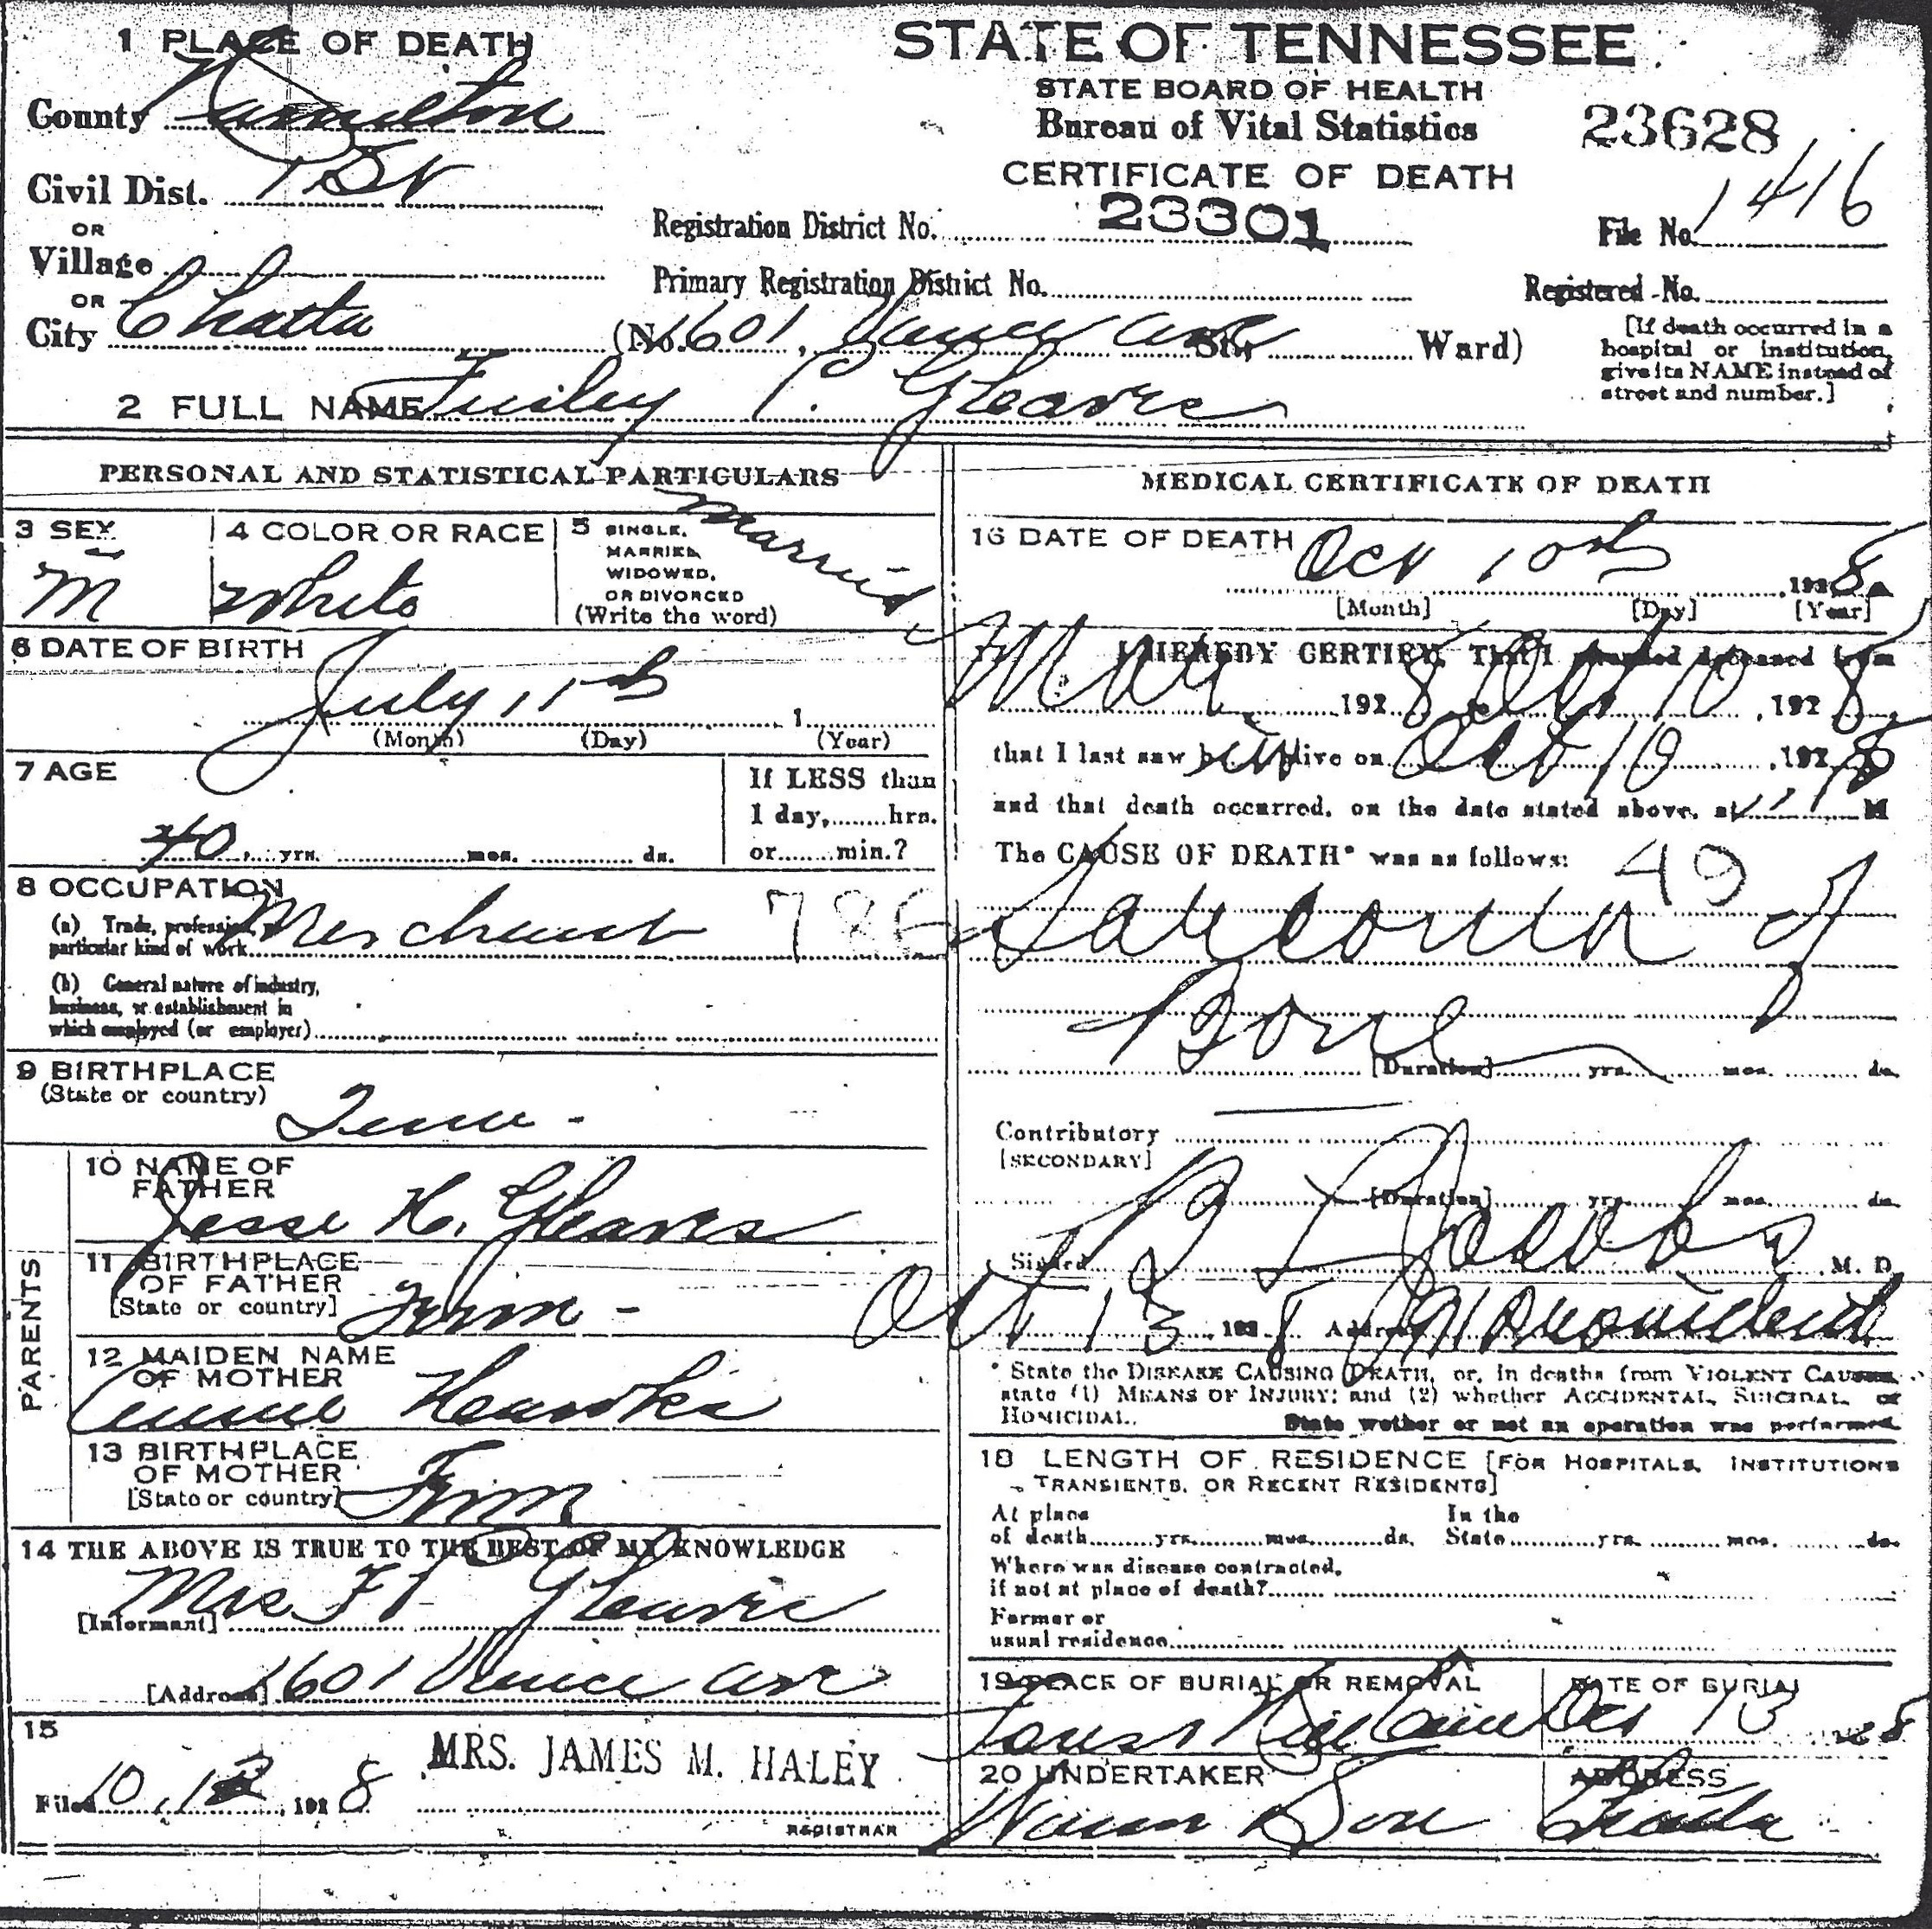 1 PLACE OF DEATH
County Hamilton
Civil Dist. 1st
OR
Village
OR
City Chatta
STATE OF TENNESSEE
STATE BOARD OF HEALTH
Bureau of Vital Statistics
CERTIFICATE OF DEATH
23628
Registration District No. 23301
File No. 1416
Primary Registration District No.
Registered No.
(No. 1601, Vance Ave St.; Ward)
[If death occurred in a
hospital or institution,
give its NAME instead of
street and number.]
2 FULL NAME Finley P. Gleaves
PERSONAL AND STATISTICAL PARTICULARS
3 SEX
M
4 COLOR OR RACE
White
5 SINGLE,
MARRIED,
WIDOWED,
OR DIVORCED
(Write the word)
Married
6 DATE OF BIRTH
July 11th 1
(Month) (Day) (Year)
7 AGE
40 yrs. mos. ds.
If LESS than
1 day, hrs.
or min.?
8 OCCUPATION
(a) Trade, profession, or
particular kind of work Merchant 786
(b) General nature of industry,
business, or establishment in
which employed (or employer)
9 BIRTHPLACE
(State or country)
Tenn -
PARENTS
10 NAME OF
FATHER
Jesse H. Gleaves
11 BIRTHPLACE
OF FATHER
[State or country] Tenn -
12 MAIDEN NAME
OF MOTHER
Annie
13 BIRTHPLACE
OF MOTHER
[State or country] Tenn
14 THE ABOVE IS TRUE TO THE BEST OF MY KNOWLEDGE
[Informant] Mrs F P Gleaves
[Address] 1601 Vance Ave
15
Filed 10, 12, 1928 MRS. JAMES M. HALEY
REGISTRAR
MEDICAL CERTIFICATE OF DEATH
16 DATE OF DEATH
Oct 10th 1928
[Month] [Day] [Year]
I HEREBY CERTIFY, That I attended deceased from
May 1928 to Oct 10, 1928,
that I last saw him alive on Oct 10, 1928
and that death occurred, on the date stated above, at 11 M
The CAUSE OF DEATH* was as follows: 49
Sarcoma of
Bone
[Duration] yrs. mos. ds.
Contributory
[SECONDARY]
[Duration] yrs. mos. ds.
Signed B Jacobs, M. D.
Oct 13 1928 Address Provident
* State the DISEASE CAUSING DEATH, or, in deaths from VIOLENT CAUSES,
state (1) MEANS OF INJURY; and (2) whether ACCIDENTAL, SUICIDAL, or
HOMICIDAL. State wether or not an operation was performed
18 LENGTH OF RESIDENCE [FOR HOSPITALS, INSTITUTIONS
TRANSIENTS, OR RECENT RESIDENTS]
At place
of death yrs. mos. ds.
In the
State yrs. mos. ds.
Where was disease contracted,
if not at place of death?
Former or
usual residence
19 PLACE OF BURIAL OR REMOVAL
Forest Hill
DATE OF BURIAL
Oct 13 1928
20 UNDERTAKER
Wann Son
ADDRESS
Chatta